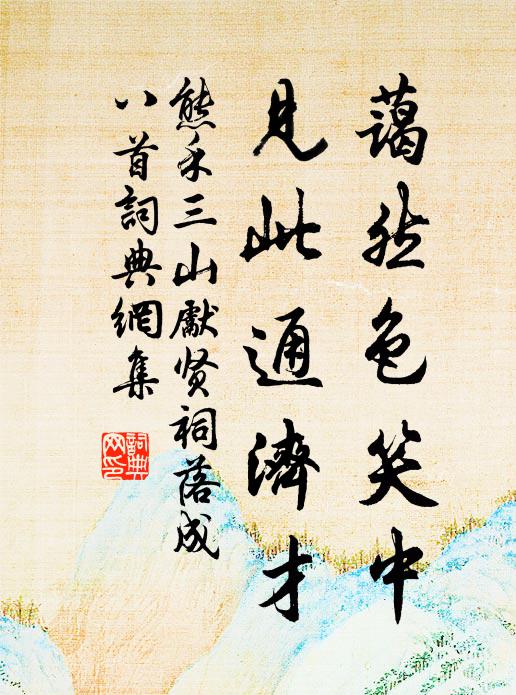 藹然色笑中
見此通濟才
熊禾三山獻贤祠落成
八首詞典網集
詞典網印